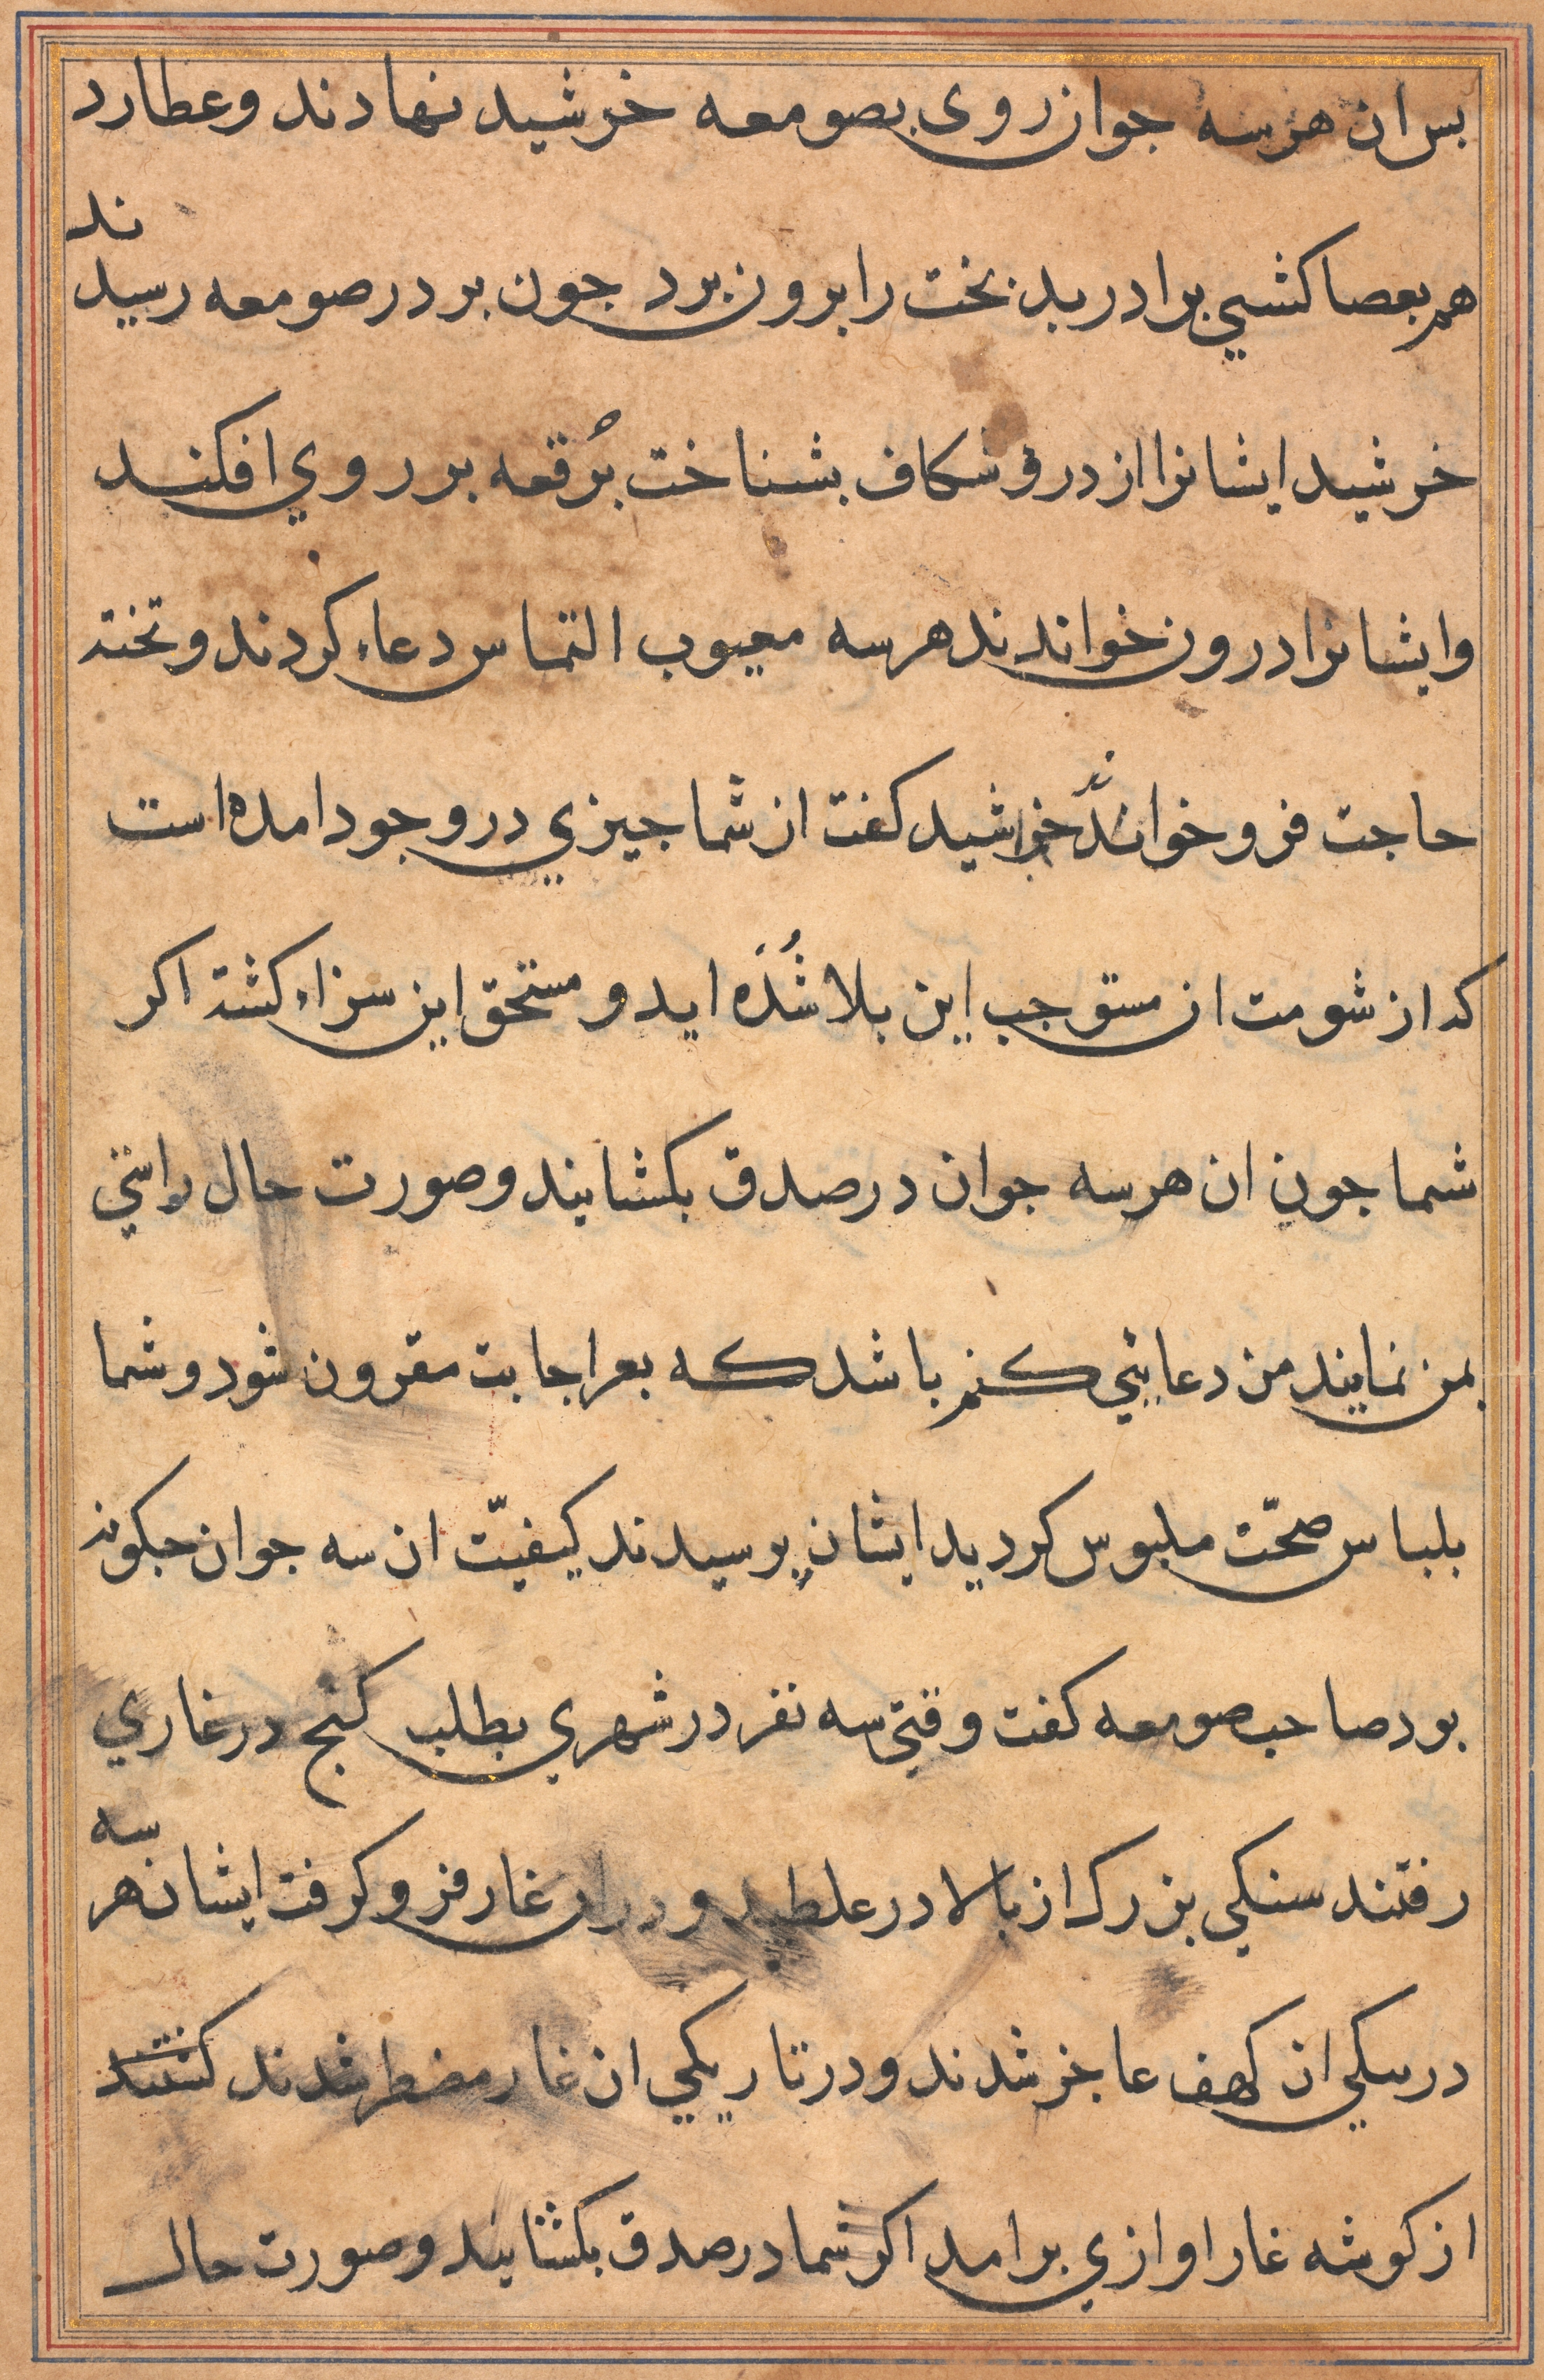 بس ان هرسه جوان روی بصومعه خرشید نهادند وعطارد
هم بعصا کشیی برادر بدبخت را برون برد جون بر در صومعه رسیدند
خرشید ایشانرا از درو شکاف بشناخت بُرقعه بر روی افکند
وایشانرا درون خواندند هرسه معیوب التماس دعاء کردند وتخته
حاجت فرو خواندّند خراشید کفت از شما جیزی در وجود امده است
که از شومت ان مستوجب این بلا شُدَه اید و مستحق این سزاء کشته اکر
شما جون ان هرسه جوان در صدق بکشایند وصورت حال راستی
بمن نمایند من دعایئی کنم باشد که بعز اجابت مقرون شود وشما
بلباس صحّت ملبوس کردید ایشان پرسیدند کیفیّت ان سه جوان جکونه
بود صاحب صومعه کفت وقتی سه نفر در شهری بطلب کنج در غاری
رفتند سنکی بزرک از بالا در علطید ودر ان غار فرو کرفت ایشان هر سه
درسکی ان کهف عاجز شدند ودر تاریکی ان غار مضطر شدند کشتند
از کوشه غار اوازی برامد اکر شما در صدق بکشایند وصورت حال